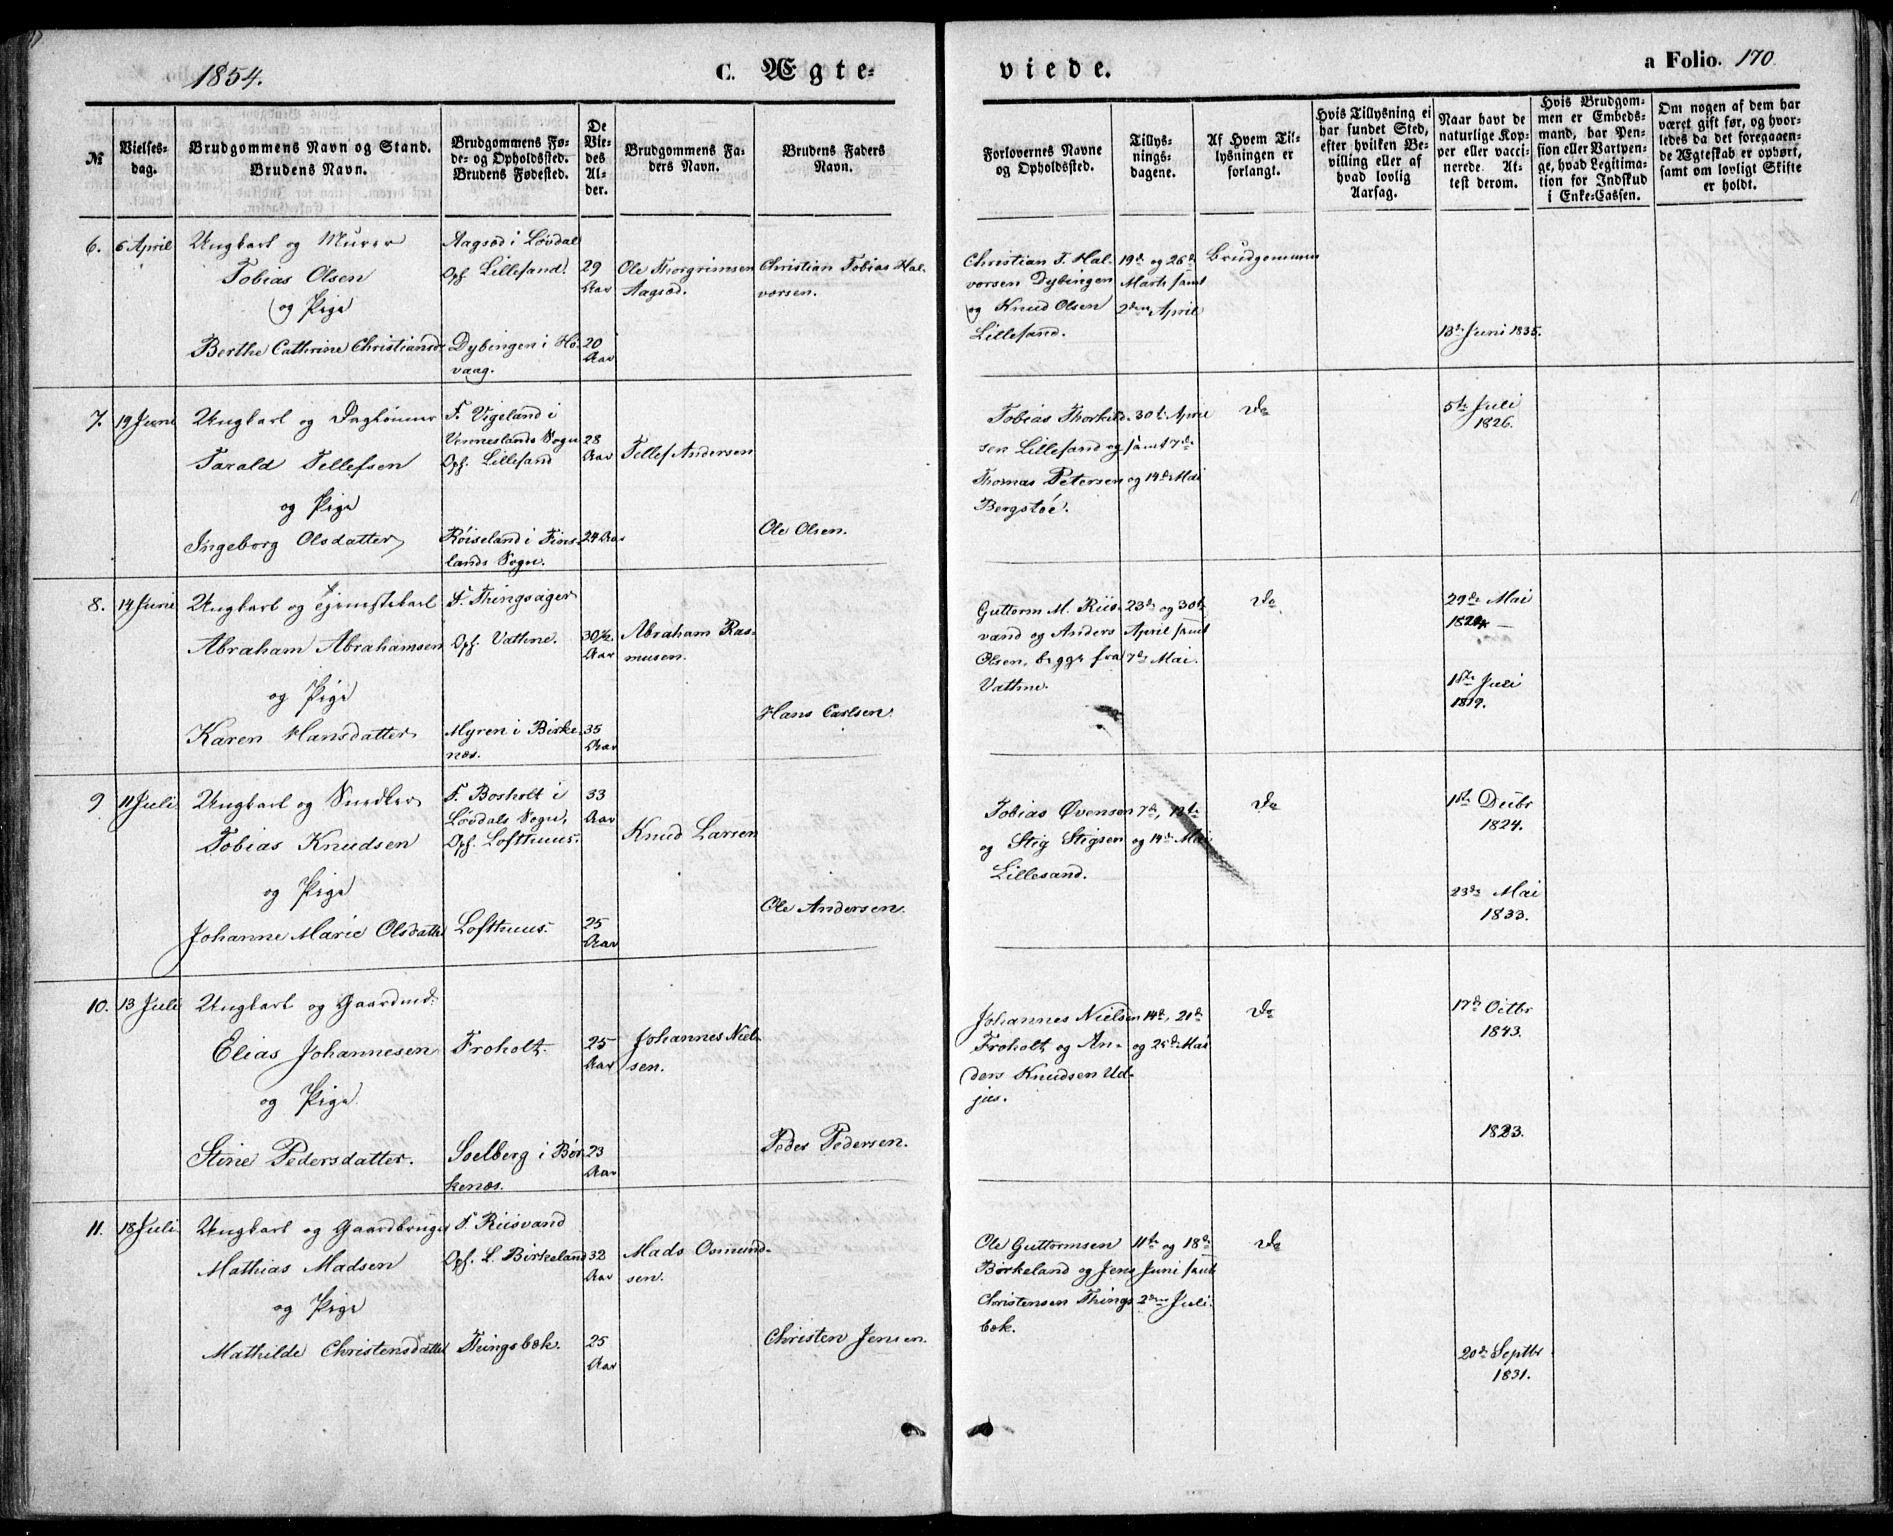 1854.
C. Ægte-
viede.
a Folio. 170
№
Vielses-
dag.
Brudgommens Navn og Stand.
Brudens Navn.
Brudgommens Fø-
de- og Opholdssted.
Brudens Fødested.
De
Vie-
des
Al-
der.
Brudgommens Fa-
ders Navn.
Brudens Faders
Navn.
Forlovernes Navne
og Opholdssted.
Tillys-
nings-
dagene.
Af Hvem Til-
lysningen er
forlangt.
Hvis Tillysning ei
har fundet Sted,
efter hvilken Be-
villing eller af
hvad lovlig
Aarsag.
Naar havt de
naturlige Kop-
per eller vacci-
nerede. At-
test derom.
Hvis Brudgom-
men er Embeds-
mand, har Pen-
sion eller Vartpen-
ge, hvad Legitima-
tion for Indskud
i Enke-Cassen.
Om nogen af dem har
været gift før, og hvor-
ledes da det foregaaen-
de Ægteskab er ophørt,
samt om lovligt Skifte
er holdt.
6. 6 April
Ungkarl og Murer
Tobias Olsen
og Pige
Berthe Cathrine Christiansd.
Aagsød i Løvdal
Oph. Lillesand.
Dybingen i Hø-
vaag.
29
Aar
20
Aar
Ole Thorgrimsen
Aagsød.
Christian Tobias Hal-
vorsen.
Christian T. Hal-
vorsen Dybingen
og Knud Olsen
Lillesand.
19de og 26de
Marts samt
2den April
Brudgommen
13de Juni 1835.
7. 19 Juni
Ungkarl og
Tarald Tellefsen
og Pige
Ingeborg Olsdatter
F. Vigeland i
Venneslands Sogn
Oph. Lillesand
Røiseland i Fins-
lands Sogn.
28
Aar
24 Aar
Tellef Andersen
Ole Olsen.
Tobias Thorkild-
sen Lillesand og
Thomas Petersen
Bergstøe.
30te April
samt 7de
og 14de Mai
Do
5te Juli
1826.
8. 14 Juni
Ungkarl og Tjenestekarl
Abraham Abrahamsen
og Pige
Karen Hansdatter
F. Thingsager
Oph. Vathne.
Myren i Birke-
næs.
30½
Aar
35
Aar
Abraham Ras-
musen.
Hans Carlsen.
Guttorm M. Riis-
vand og Anders
Olsen, begge fra
Vathne.
23de og 30te
April samt
7de Mai.
Do
29de Mai
1824
18de Juli
1819.
9 11 Juli
Ungkarl og Snedker
Tobias Knudsen
og Pige
Johanne Marie Olsdatter
F. Bosholt i
Løvdals Sogn,
Oph. Lofthuus.
Lofthuus.
33
Aar
25
Aar
Knud Larsen
Ole Andersen.
Tobias Øvensen
og Stig Stigsen
Lillesand.
7de, 13te
og 14de Mai
Do
1ste Decbr
1824.
23de Mai
1833.
10. 13 Juli
Ungkarl og Gaardmd.
Elias Johannesen
og Pige
Stine Pedersdatter.
Froholt.
Soelberg i Bir-
kenæs.
25
Aar
23
Aar
Johannes Niel-
sen.
Peder Pedersen.
Johannes Nielsen
Froholt og An-
ders Knudsen Ud-
jus.
14de, 21de
og 25de Mai
Do
17de Octbr
1843.
1823.
11. 18 Juli
Ungkarl og Gaardbruger
Mathias Madsen
og Pige
Mathilde Christensdatter
F. Riisvand
Oph. L. Birkeland
Thingsbæk.
32
Aar
25
Aar
Mads Osmund-
sen.
Christen Jensen.
Ole Guttormsen
Birkeland og Jens
Christensen Things-
bæk.
11te og 18de
Juni samt
2den Juli.
Do
20de Septbr
1831.